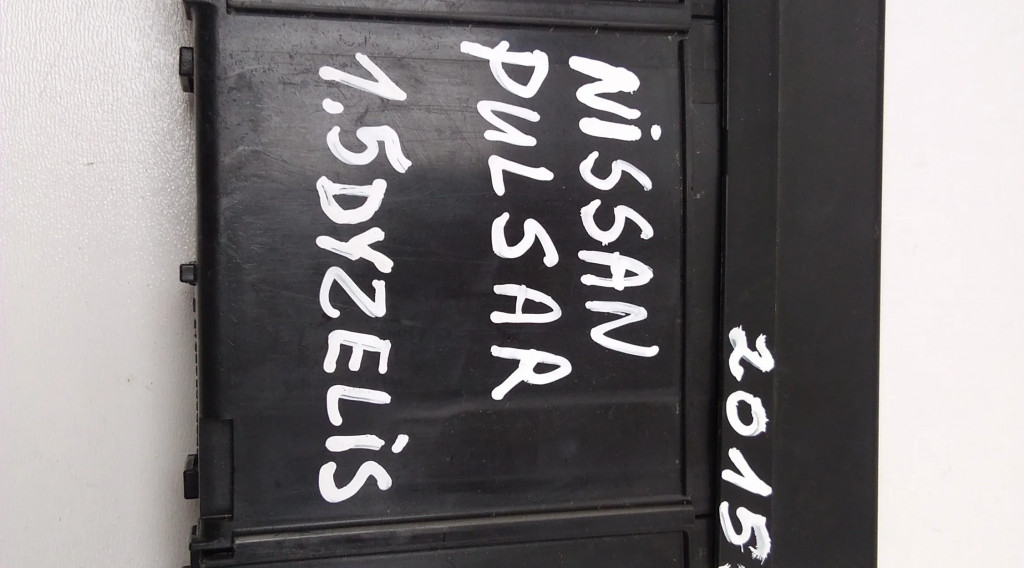 2015
NiSSAN
PULSAR
1.5DYZELiS